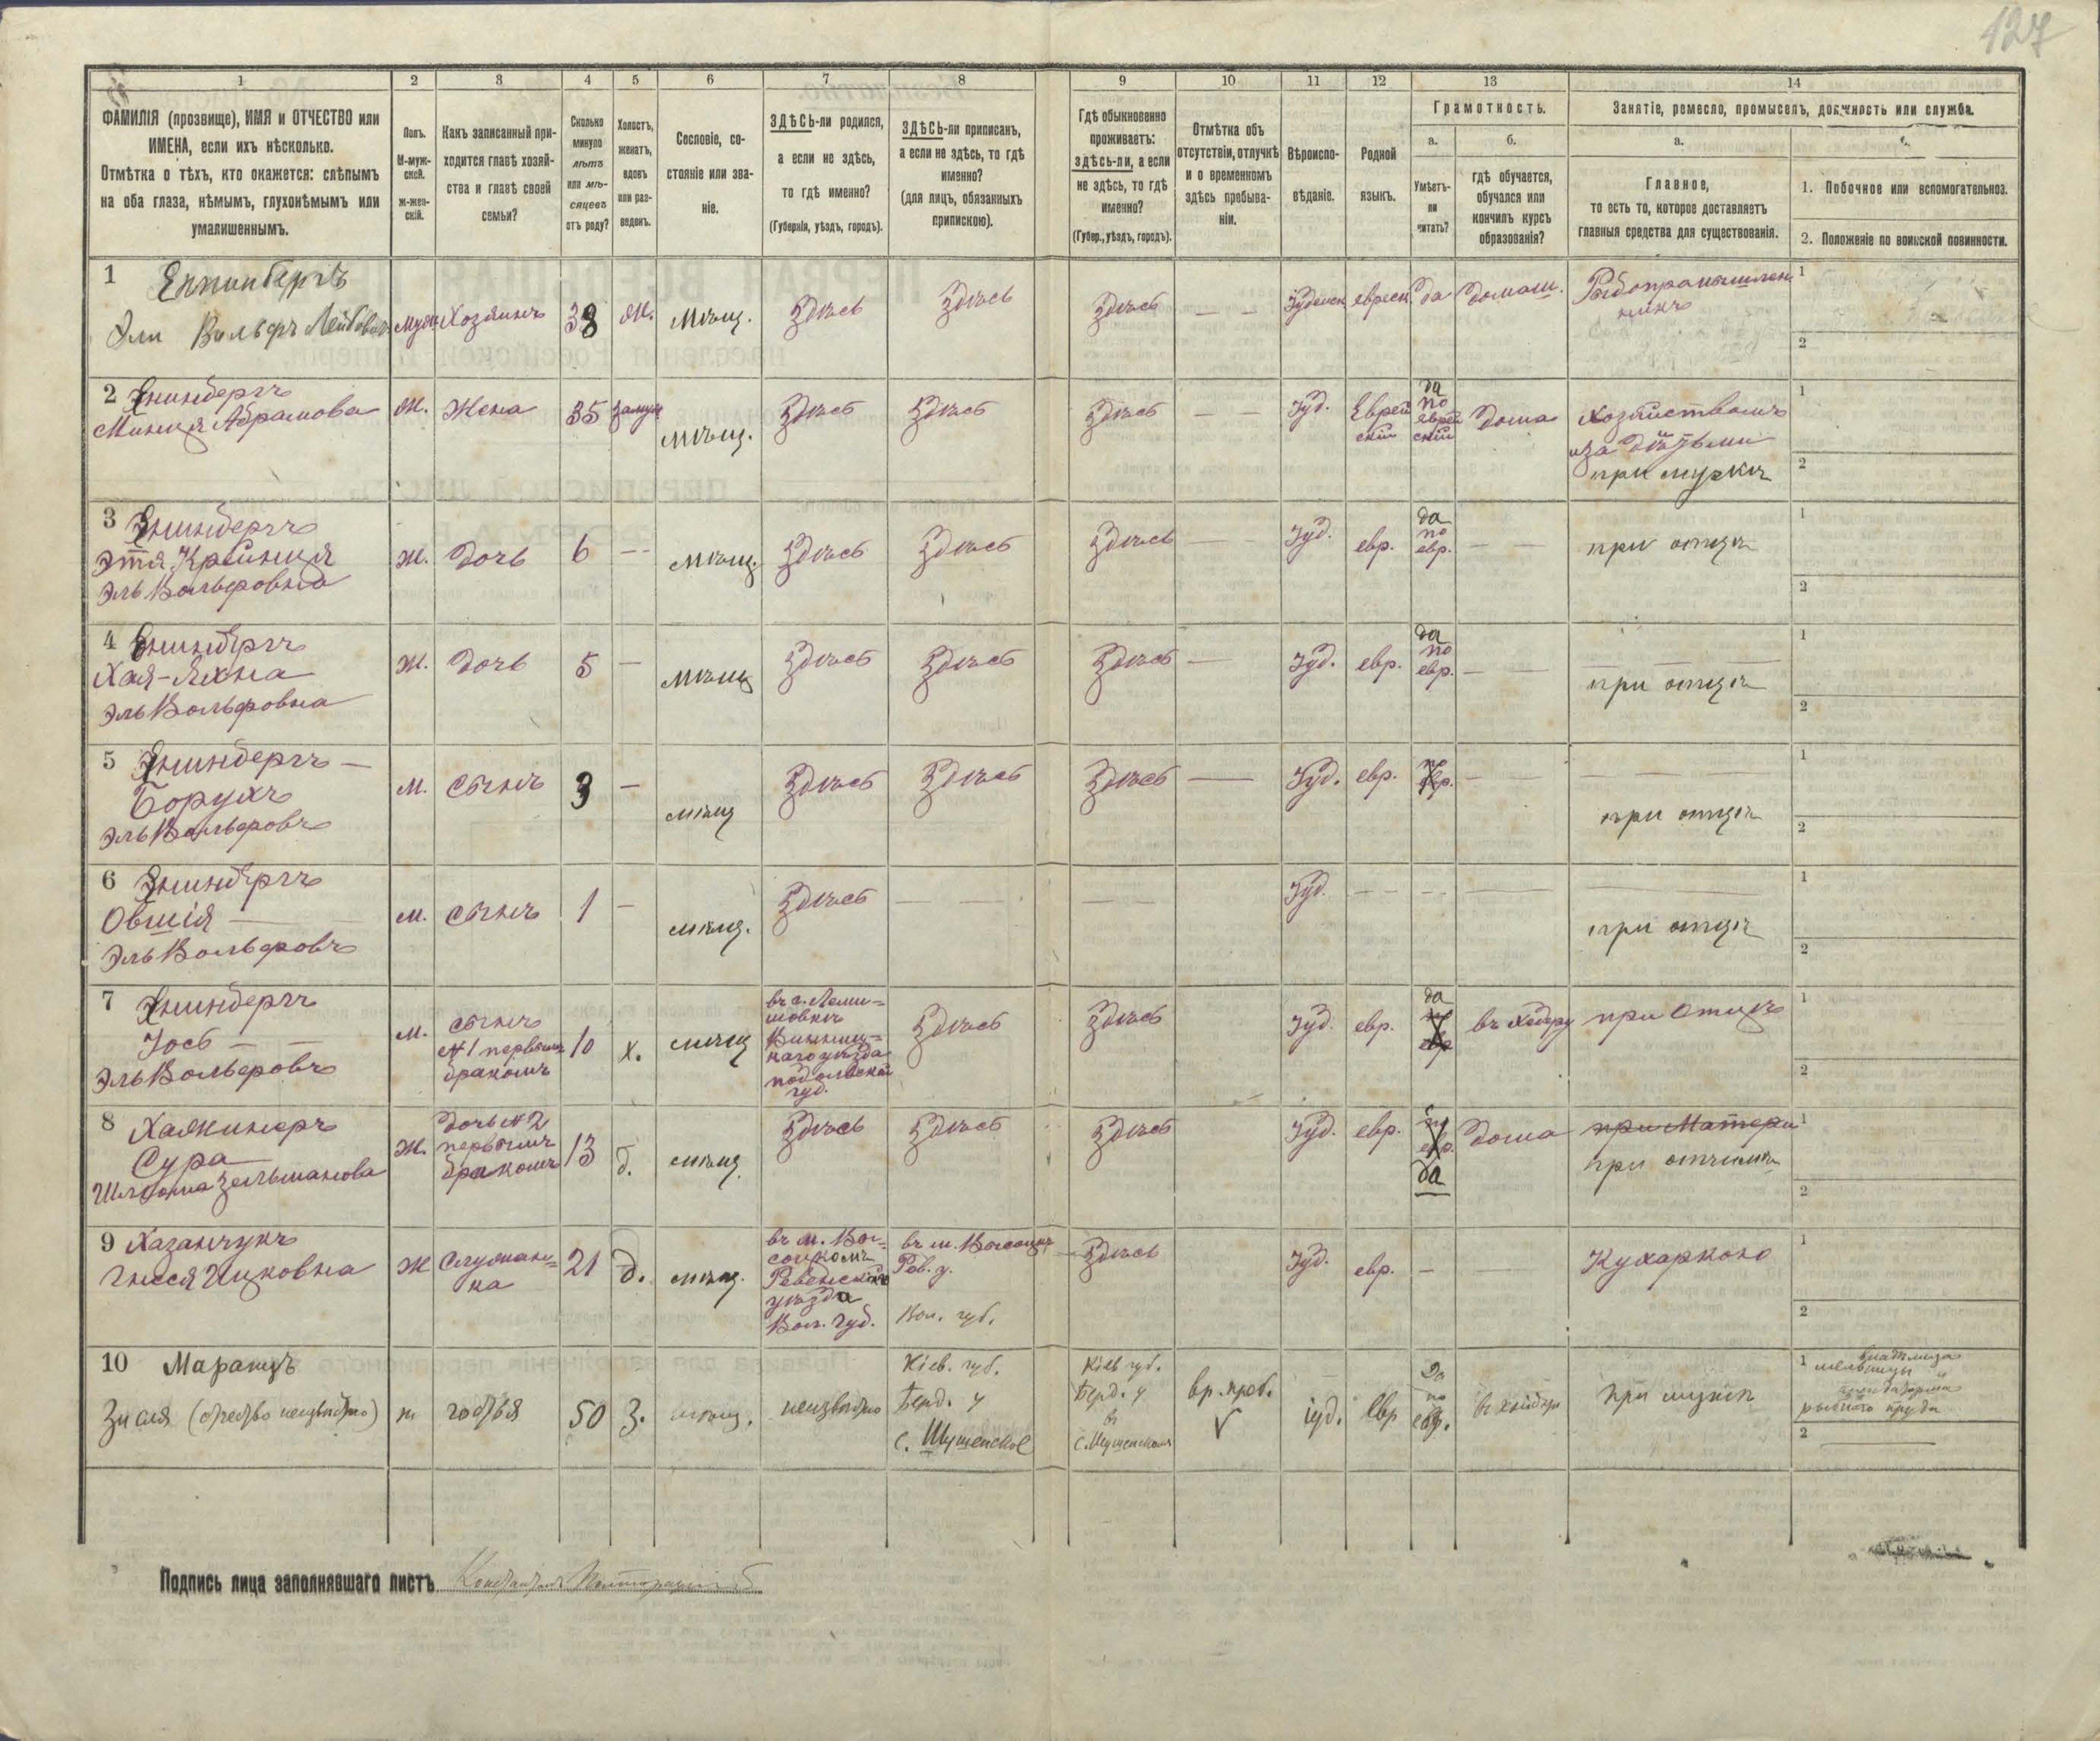 127
1 2 3 4 5 6 7 8 9 10 11 12 13 14
ФАМИЛІЯ (прозвище), ИМЯ и ОТЧЕСТВО или
ИМЕНА, если ихъ нѣсколько.
Отмѣтка о тѣхъ, кто окажется: слѣпымъ
на оба глаза, нѣмымъ, глухонѣмымъ или
умалишеннымъ.
Полъ.
М-муж-
ской.
ж-жен-
скій.
Какъ записанный при-
ходится главѣ хозяй-
ства и главѣ своей
семьи?
Сколько
минуло
лѣтъ
или мѣ-
сяцевъ
отъ роду?
Холостъ,
женатъ,
вдовъ
или раз-
веденъ.
Сословіе, со-
стояніе или зва-
ніе.
ЗДѢСЬ-ли родился,
а если не здѣсь,
то гдѣ именно?
(Губернія, уѣздъ, городъ).
ЗДѢСЬ-ли приписанъ,
а если не здѣсь, то гдѣ
именно?
(для лицъ, обязанныхъ
припискою).
Гдѣ обыкновенно
проживаетъ:
здѣсь-ли, а если
не здѣсь, то гдѣ
именно?
(Губер., уѣздъ, городъ).
Отмѣтка объ
отсутствіи, отлучкѣ
и о временномъ
здѣсь пребыва-
ніи.
Вѣроиспо-
вѣданіе.
Родной
языкъ.
Грамотность.
а.
Умѣетъ-
ли
читать?
б.
гдѣ обучается,
обучался или
кончилъ курсъ
образованія?
Занятіе, ремесло, промыселъ, должность или служба.
а.
Главное,
то есть то, которое доставляетъ
главныя средства для существованія.
1. Побочное или вспомогательное.
2. Положеніе по воинской повинности.
1
Эли Вольфъ Лейбовъ
Хозяинъ 38 Ж. Мѣщ. Здѣсь Здѣсь Здѣсь — — Іудейск еврейск да домаш.
Рыбопромышлен
никъ
1
2
2 Энинбергъ
Минця Абрамова
Ж. Жена 35 замуж мѣщ. Здѣсь Здѣсь Здѣсь — — Іуд. Еврей
скій
да
по
еврей
скій
дома
Хозяйствомъ
и за дѣтьми
при мужѣ
1
2
3 Энинбергъ
Этя Крейнця
Эль Вольфовна
Ж. Дочь 6 — мѣщ. Здѣсь Здѣсь Здѣсь — Іуд. евр.
да
по
евр.
— при отцѣ
1
2
4 Энинбергъ
Хая-Яхна
Эль Вольфовна
Ж. Дочь 5 — мѣщ Здѣсь Здѣсь Здѣсь — Іуд. евр.
да
по
евр.
— при отцѣ
1
2
5 Энинбергъ —
Борухъ
Эль Вольфовъ
М. Сынъ 3 — мѣщ Здѣсь Здѣсь Здѣсь — Іуд. евр.
по
евр.
— при отцѣ
1
2
6 Энинбергъ
Овшія —
Эль Вольфовъ
М. Сынъ 1 — мѣщ. Здѣсь — — — — Іуд. — — — при отцѣ
1
2
7 Энинбергъ
Іось — —
Эль Вольфовъ
М.
сынъ
№ 1 первымъ
бракомъ
10 х. мѣщ
Винниц=
каго уѣзда
подольской
губ.
Здѣсь Здѣсь Іуд. евр.
да
по
евр
въ хедеру при Отцѣ
1
2
8
Сура
Зельманова
Ж.
Дочь № 2
первымъ
бракомъ
13 д. мѣщ. Здѣсь Здѣсь Здѣсь Іуд. евр.
по
евр.
да
дома
при Матери
при отчимѣ
1
2
9 Хазанчукъ
Гнеся Ицковна
Ж
Служан=
ка
21 д. мѣщ.
въ м. Вы=
соцкомъ
Ровенскаго
уѣзда
Вол. губ.
въ м. Высоцкѣ
Ров. у.
Вол. губ.
Здѣсь Іуд. евр. — — Кухаркою
1
2
10 Маранцъ
Зисля (отчество неизвѣстно)
ж гостья 50 З. мѣщ. неизвѣстно
Кіев. губ.
Берд. у
с. Шушенское
Кіев губ.
Берд. у
в
вр. преб.
іуд. Евр
Да
по
евр.
в хейдеръ
при мужѣ
1
мельницы
рыбнаго пруда
2
Подпись лица заполнявшаго листъ